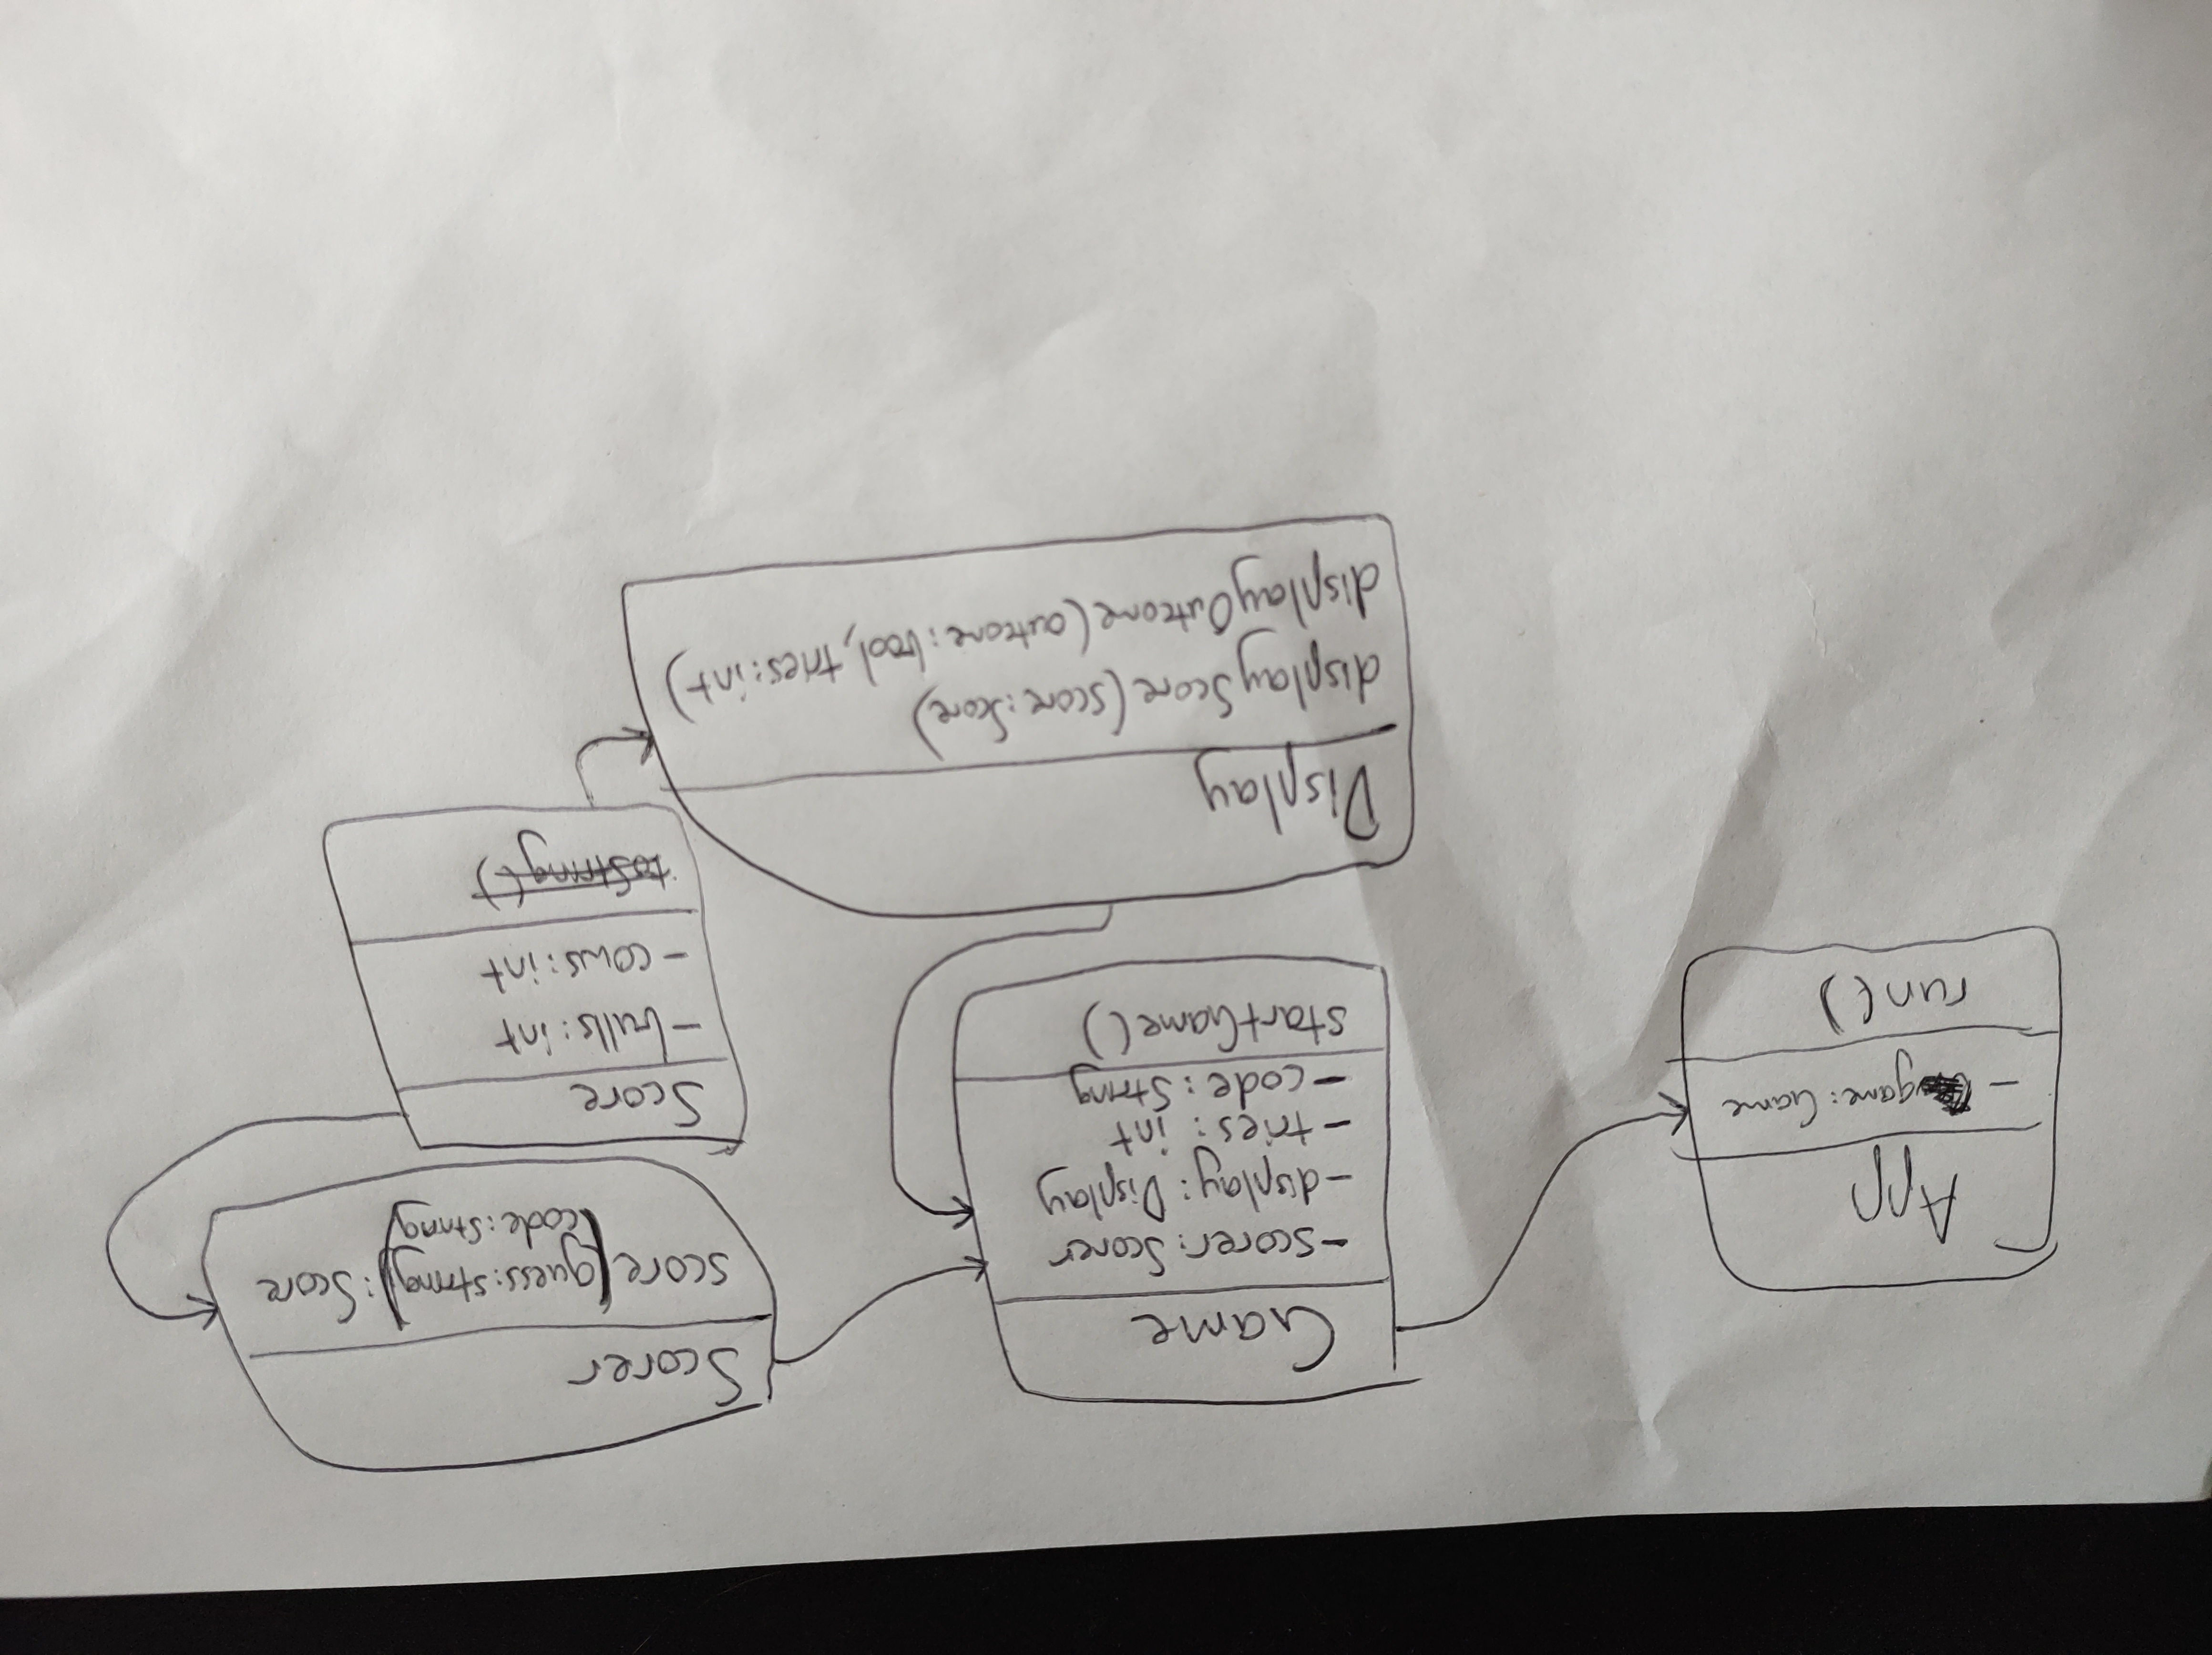 App
- game: Game
run()
Game
- scorer: Scorer
- display: Display
- tries: int
- code: String
startGame()
Scorer
score(guess: string): Score
code: String
Score
- bulls: int
- cows: int
toString()
Display
displayScore(score: Score)
displayOutcome(outcome: bool, tries: int)